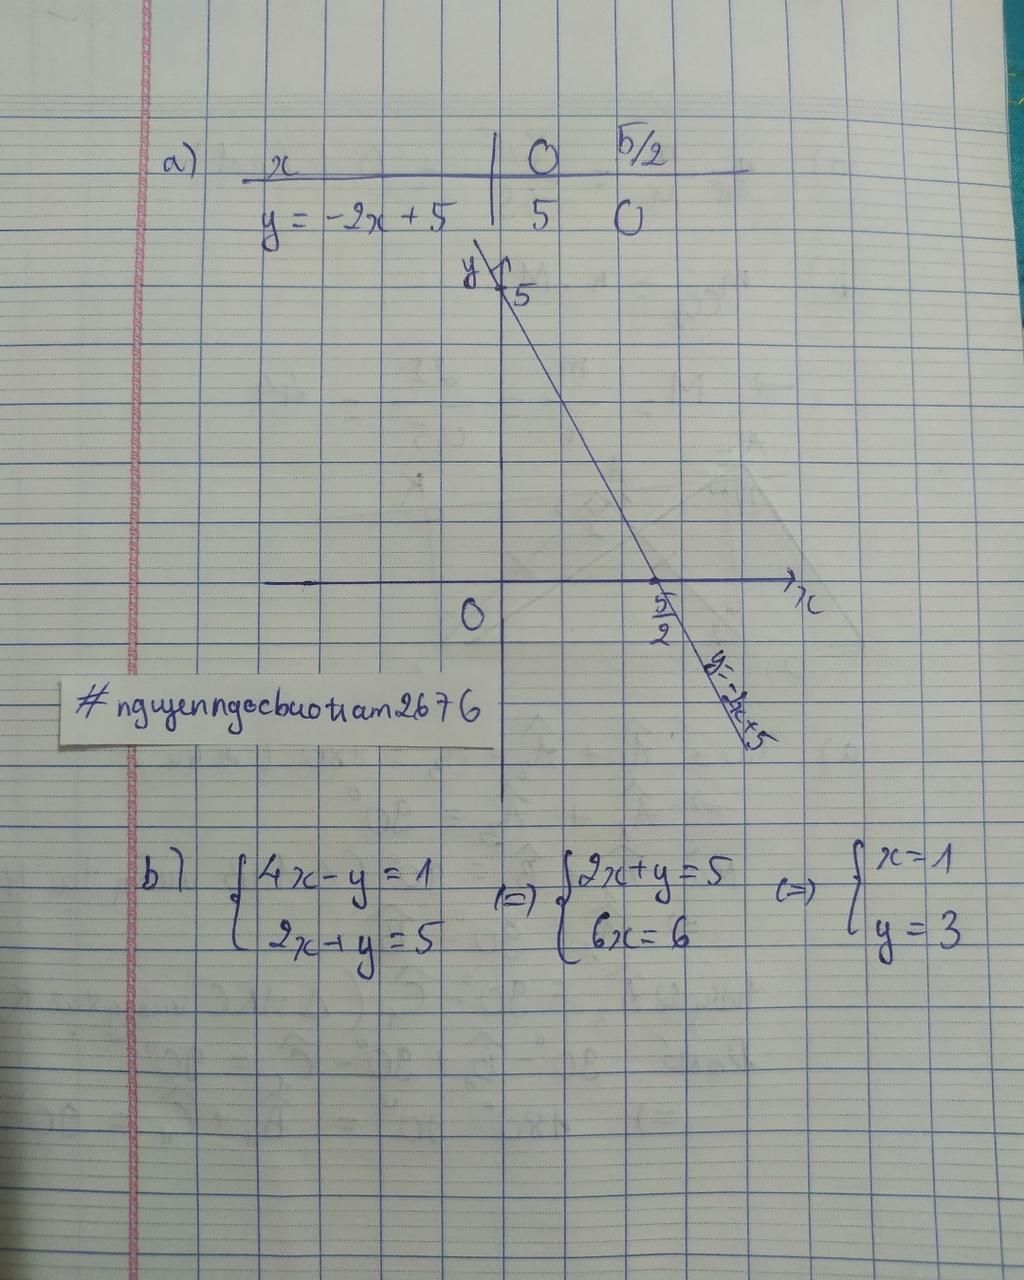 a) x 0 5/2
y = -2x + 5 5 0
y
5
0
5/2
x
y=-2x+5
#nguyenngocbuotram2676
b) { 4x - y = 1 (=) { 2x + y = 5 (=) { x = 1
2x + y = 5 6x = 6 y = 3